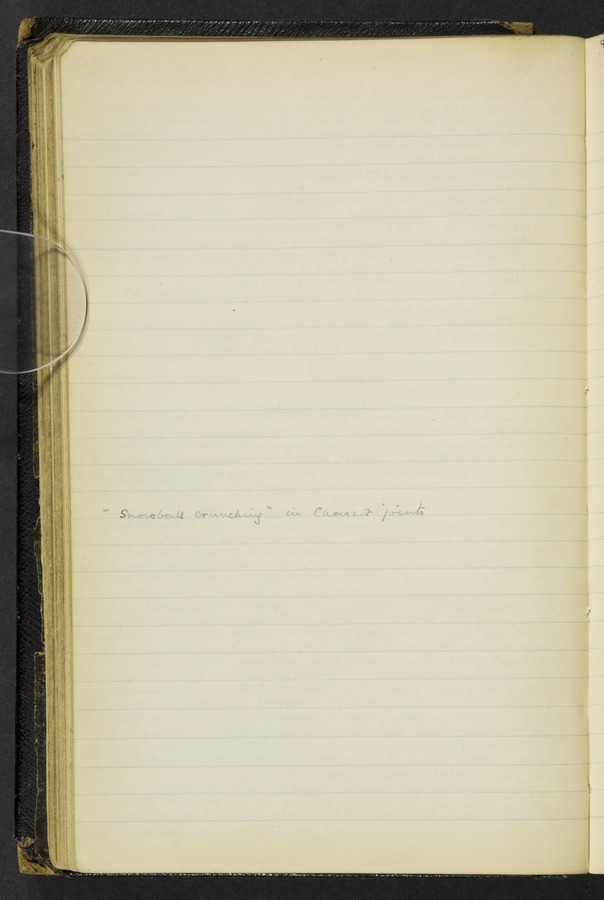 "Snowball crunching" in Charcot joints